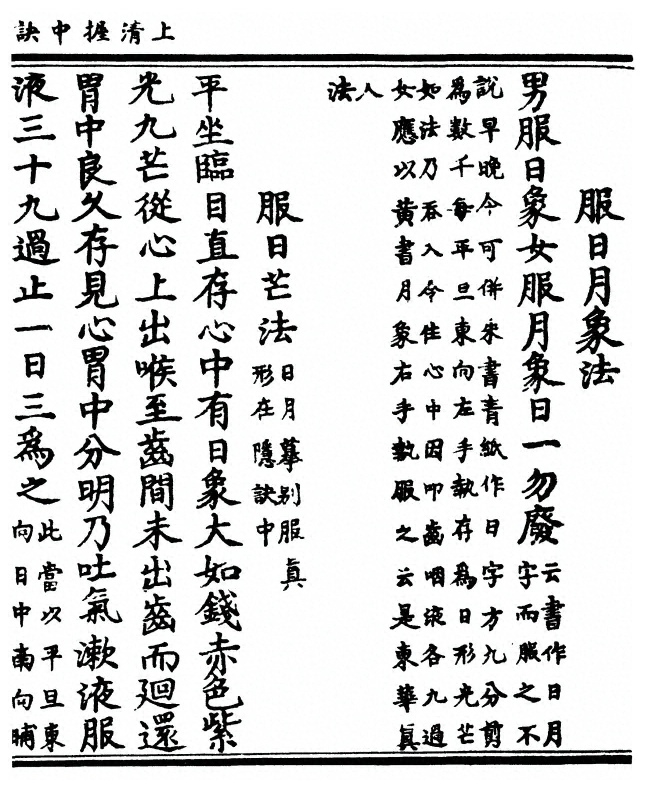 上清握中訣
服日月象法
男服日象女服月象日一勿廢
云書作日月
字而服之不
說早晚今可併朱書青紙作日字方九分剪
為數千每平旦東向左手執存為日形光芒
如法乃吞入今住心中因叩齒咽液各九過
女應以黃書月象右手執服之云是東華真
人
法
服日芒法
日月摹别服真
形在隱訣中
平坐臨目直存心中有日象大如錢赤色紫
光九芒從心上出喉至齒間未出齒而廻還
胃中良久存見心胃中分明乃吐氣漱液服
液三十九過止一日三爲之
此當以平旦東
向日中南向晡